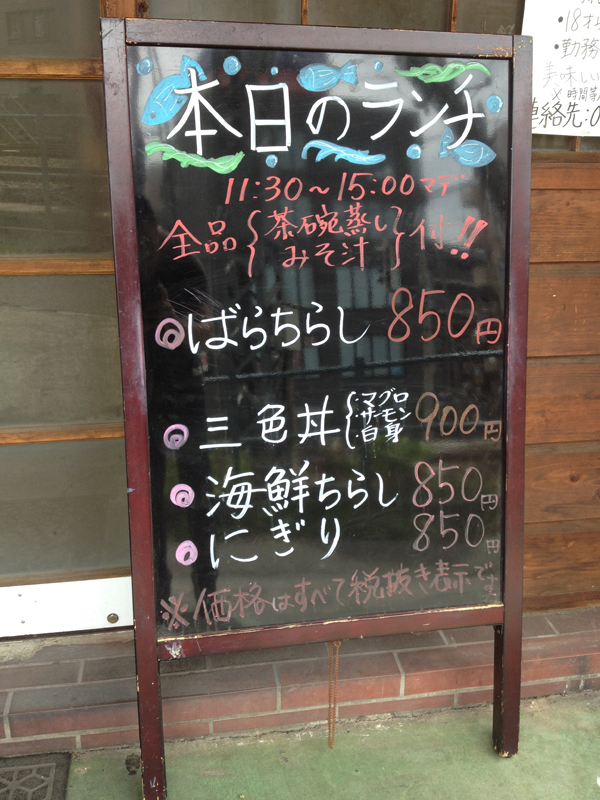 本日のランチ
11:30～15:00マデ
全品{茶碗蒸し みそ汁}付!!
ばらちらし 850円
三色丼{・マグロ ・サーモン ・白身 900円
海鮮ちらし 850円
にぎり 850円
※価格はすべて税抜き表示です
・18才
・勤務
美味しい
※時間帯
連絡先:0